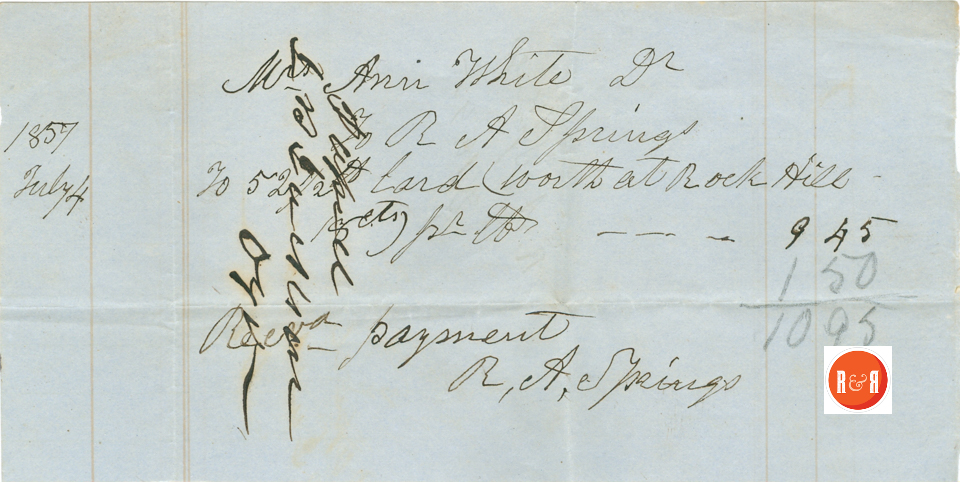 Mrs Ann White Dr
To R A Springs
1857
July 4
To 52 1/2 lb lard (worth at Rock Hill
18 cts) pr lb — — — — 9 45
1 50
10 95
Recvd payment
R, A, Springs
R&R